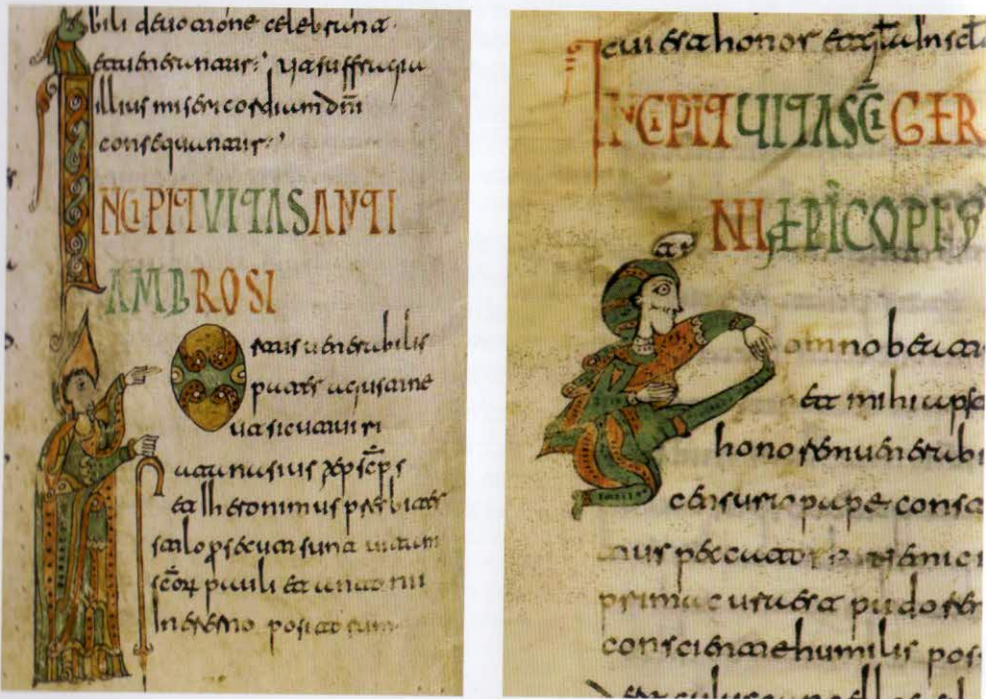 bili devotione celebrant.
et venerantur: ut suffragia
illius misericordiam dñi
consequantur:
INCIPIT VITA SANTI
AMBROSI
Ortaris venerabilis
pater agustine
ut sicut viri
atanasius epscps
et Iheronimus presbiter
stilo prosecuti sunt vitam
scor pauli et antoni
In eremo positorum
cui est honor et gla In scla
INCIPIT VITA SCI GER
NI EPICOPI
Domno beat
et mihi apso
honore venerabi
censurio pape consta
tius peccator
prima cura est pudorem
conscientiae humilis pos